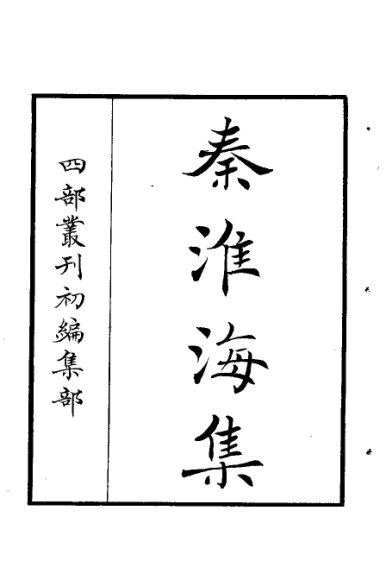 秦淮海集
四部叢刊初編集部